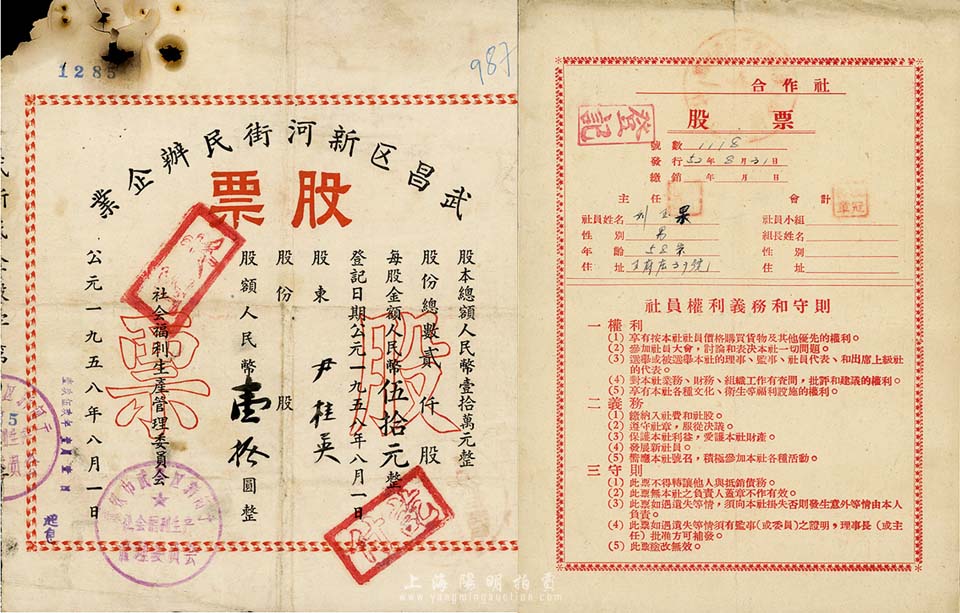 1285
987
武昌区新河街民辦企業
股票
股本總額人民幣壹拾萬元整
股份總數貳仟股
每股金額人民幣伍拾元整
登記日期公元一九五八年八月一日
股東 尹桂英
股份 股
股額人民幣壹拾圓整
社会福利生產管理委員会
公元一九五八年八月一日
股票
合作社
股票
登記
號數 1118
發行 52年8月31日
繳銷 年 月 日
主任
會計
社員姓名
社員小組
性別 男
組長姓名
年齡 58岁
性別
住址
住址
社員權利義務和守則
一 權利
(1) 享有按本社社員價格購買貨物及其他優先的權利。
(2) 參加社員大會,討論和表決本社一切問題。
(3) 選舉或被選舉本社的理事、監事、社員代表、和出席上級社的代表。
(4) 對本社業務、財務、組織工作有查問,批評和建議的權利。
(5) 享有本社各種文化、衛生等福利設施的權利。
二 義務
(1) 繳納入社費和社股。
(2) 遵守社章,服從決議。
(3) 保護本社利益,愛護本社財產。
(4) 發展新社員。
(5) 響應本社號召,積極參加本社各種活動。
三 守則
(1) 此票不得轉讓他人與抵銷債務。
(2) 此票無本社之負責人蓋章不作有效。
(3) 此票如遇遺失等情,須向本社掛失否則發生意外等情由本人負責。
(4) 此票如遇遺失等情須有監事(或委員)之證明,理事長(或主任)批准方可補發。
(5) 此票塗改無效。
上海陽明拍賣
www.yangmingauction.com